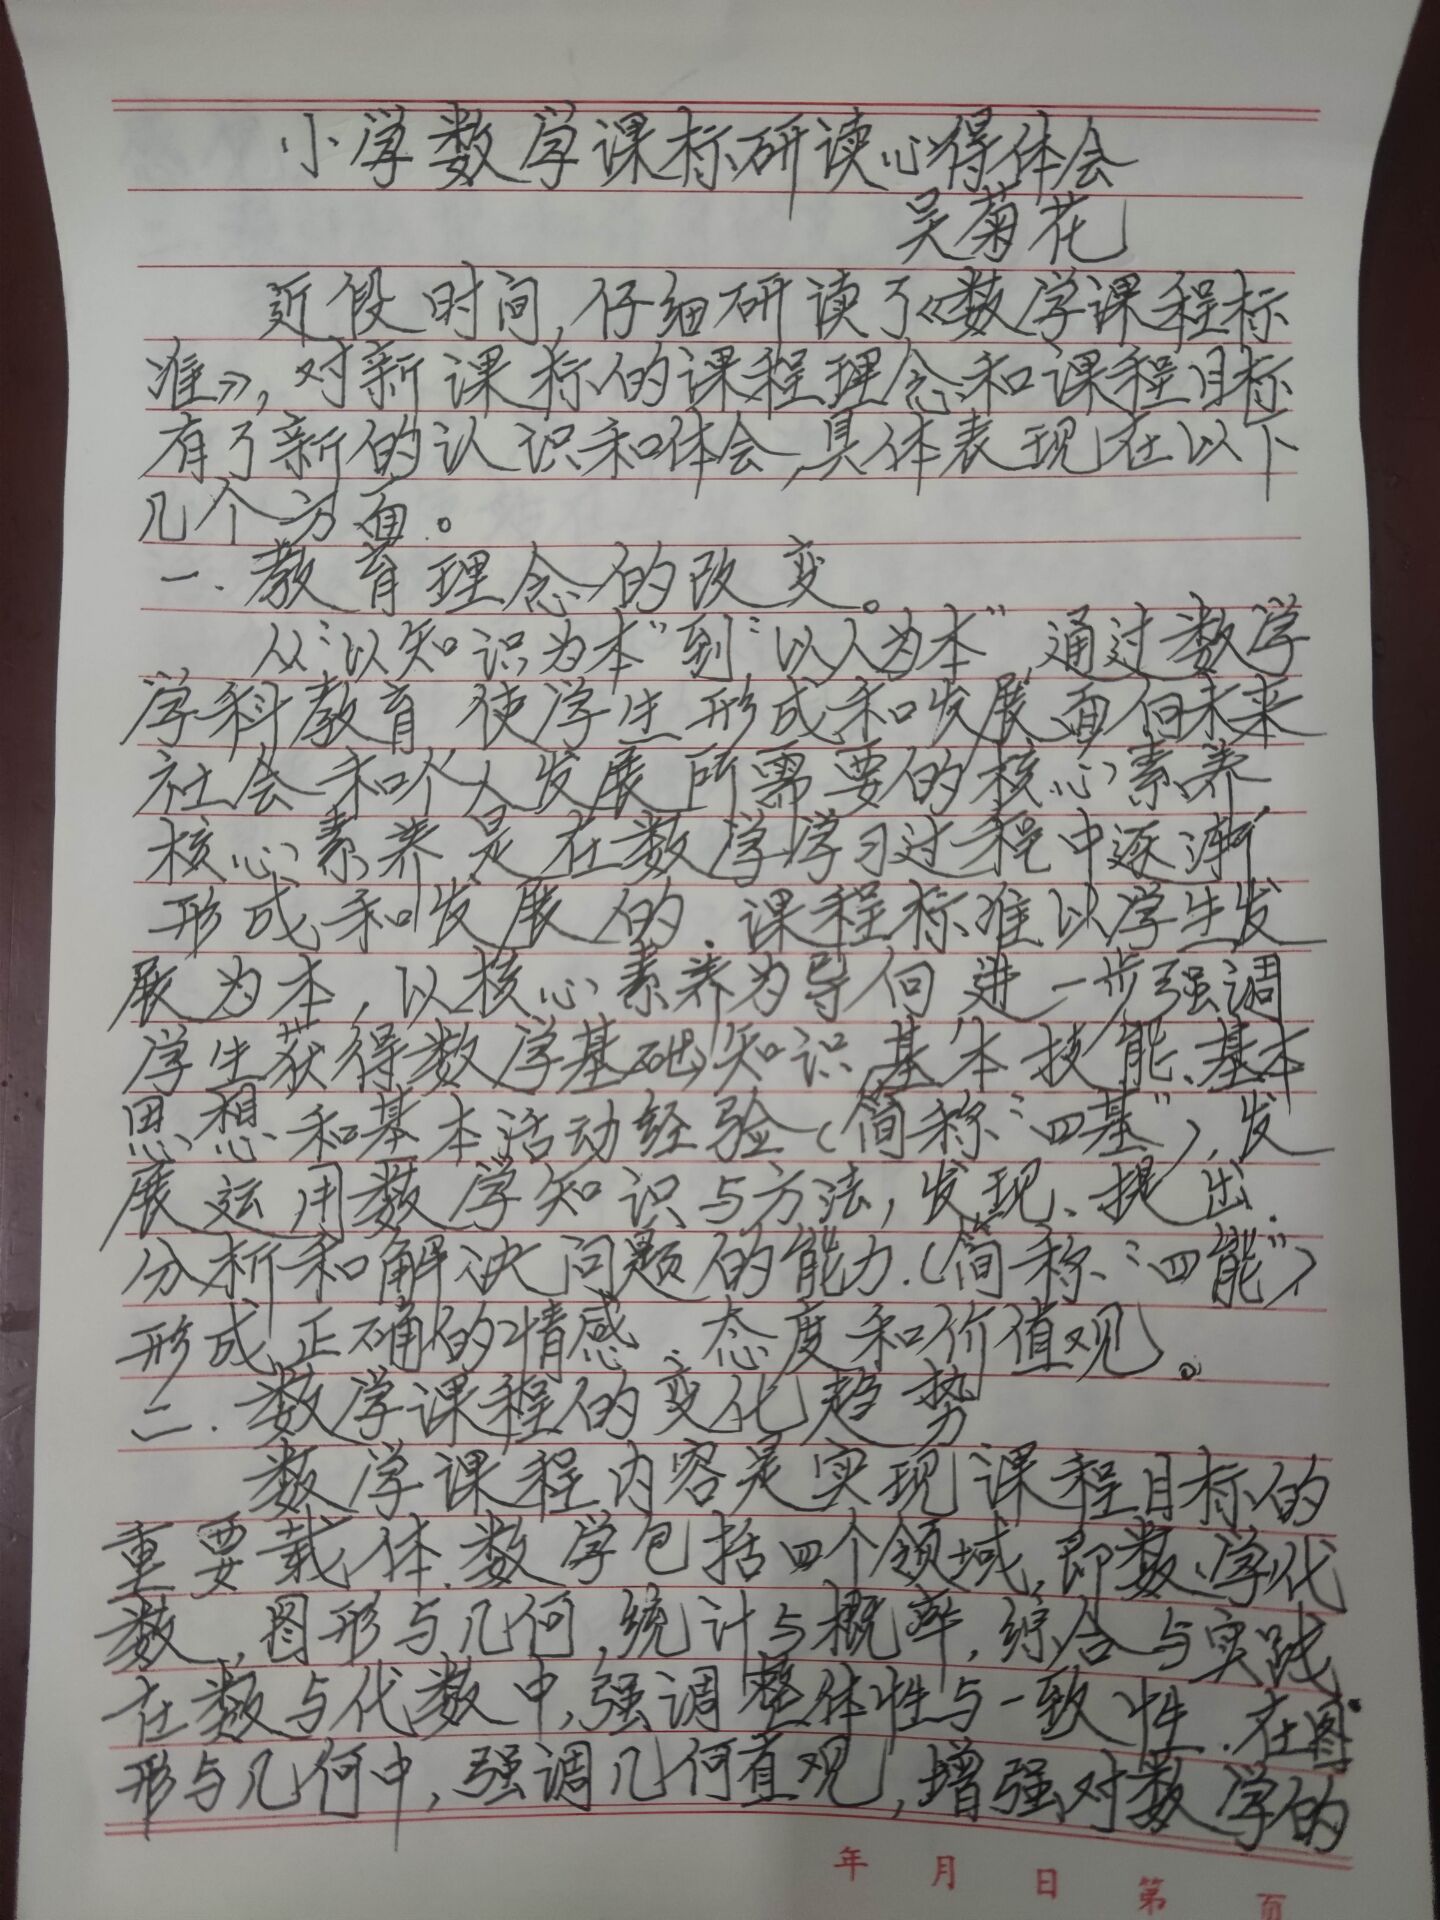 小学数学课标研读心得体会
吴菊花
近段时间,仔细研读了《数学课程标
准》,对新课标的课程理念和课程目标
有了新的认识和体会,具体表现在以下
几个方面。
一.教育理念的改变。
从“以知识为本”到“以人为本”通过数学
学科教育 使学生形成和发展面向未来
社会和个人发展所需要的核心素养
核心素养是在数学学习过程中逐渐
形成和发展的.课程标准以学生发
展为本,以核心素养为导向 进一步强调
学生获得数学基础知识、基本技能、基本
思想和基本活动经验(简称“四基”),发
展运用数学知识与方法,发现、提出.
分析和解决问题的能力.(简称“四能”)
形成正确的情感、态度和价值观。
二.数学课程的变化趋势
数学课程内容是实现课程目标的
重要载体.数学包括四个领域,即数学代
数,图形与几何,统计与概率,综合与实践.
在数与代数中,强调整体性与一致性.在图
形与几何中,强调几何直观,增强对数学的
年 月 日 第 页